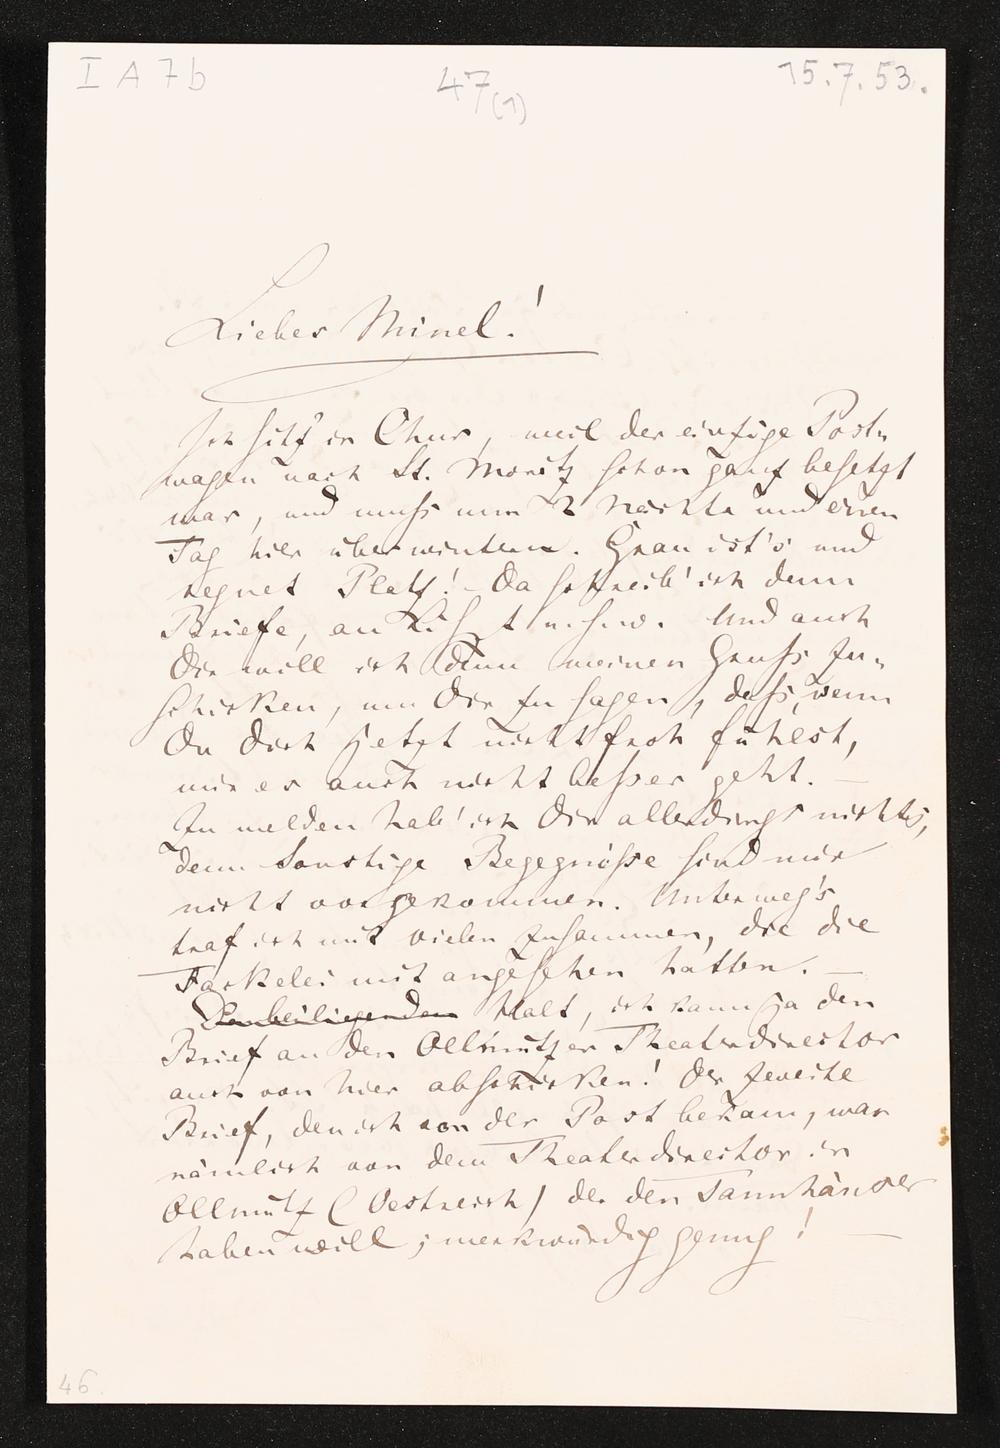 I A 7 b
47 (1)
15.7.53.
Liebes Minel!
Ich sitz' in Chur, weil der einzige Post-
wagen nach St. Moritz schon ganz besetzt
war, und muss nun 2 Nächte und einen
Tag hier überwintern. Grau ist's und
regnet Platz! – Da schreib' ich denn
Briefe, an Liszt u.s.w. Und auch
Dir will ich denn meinen Gruss zu-
schicken, um Dir zu sagen, dass, wenn
Du Dich jetzt nicht froh fühlest,
mir es auch nicht besser geht. —
Zu melden hab' ich Dir allerdings nichts,
denn sonstige Begegnisse sind mir
nicht vorgekommen. Unterweg's
traf ich mit vielen zusammen, die die
Fackelei mit angesehen hatten. —
Den beiliegenden Halt, ich kann ja den
Brief an den Ollmützer Theaterdirector
auch von hier abschicken! Der zweite
Brief, den ich von der Post bekam, war
nämlich von dem Theaterdirector in
Ollmütz (Oestreich) der den Tannhäuser
haben will; merkwürdig genug! —
46.